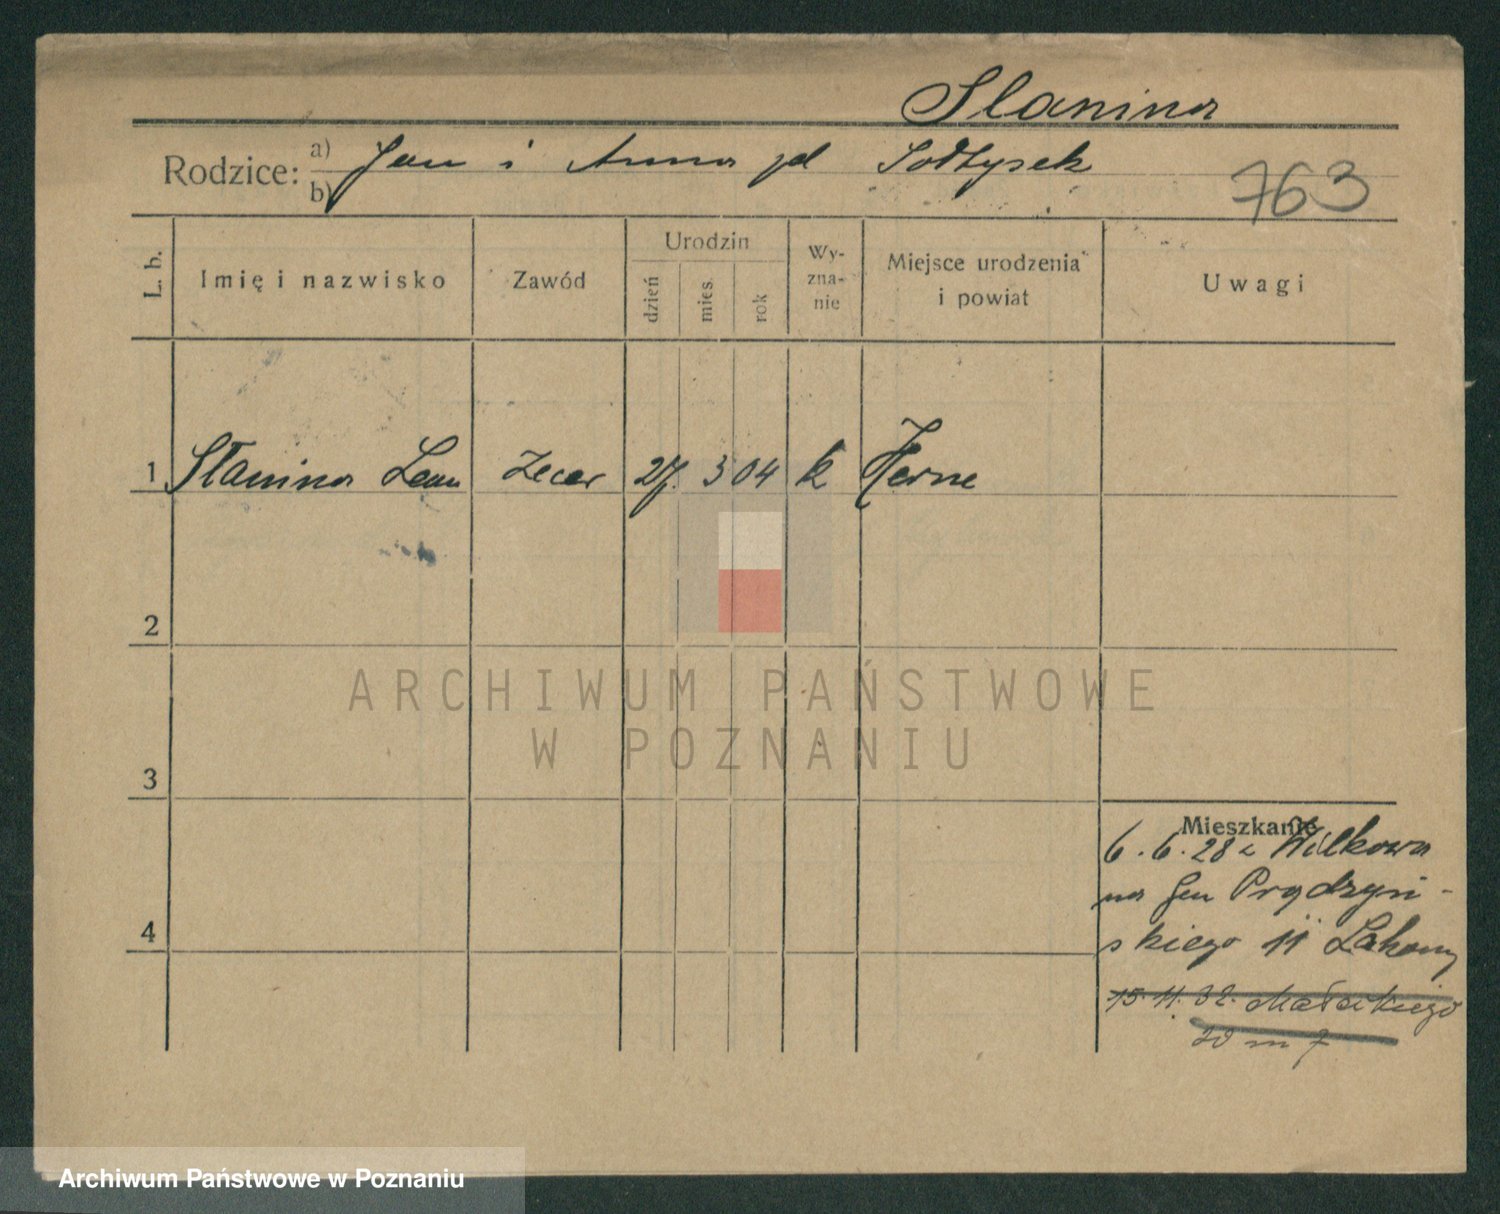 Slanina
Rodzice: a) Jan i Anna zd Sołtysek
b)
763
L. b.
Imię i nazwisko
Zawód
Urodzin
dzień
mies.
rok
Wy-
zna-
nie
Miejsce urodzenia
i powiat
Uwagi
1 Słanina Leon Zecer 27. 3 04 k Herne
2
3
4
Mieszkanie
6. 6. 28 z Wilkowa
na Gen Prądzyń-
skiego 11
15. 11. 32. Małeckiego
20 m 7
ARCHIWUM PAŃSTWOWE
W POZNANIU
Archiwum Państwowe w Poznaniu